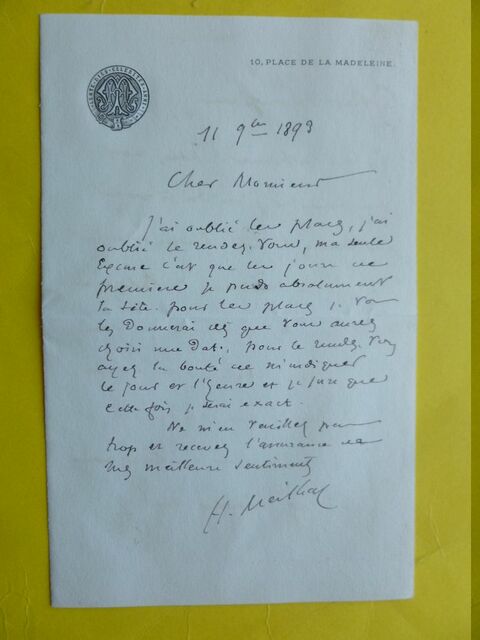 10, PLACE DE LA MADELEINE.
11 9bre 1893
Cher Monsieur
J'ai oublié les places, j'ai
oublié le rendez-vous, ma seule
Excuse c'est que les jours de
première je perds absolument
la tête. pour les places je vous
les donnerai dès que vous aurez
choisi une date, pour le rendez-vous
ayez la bonté de m'indiquer
le jour et l'heure et je jure que
cette fois je serai exact.
Ne m'en veuillez pas
trop et recevez l'assurance de
mes meilleurs sentiments
H. Meilhac